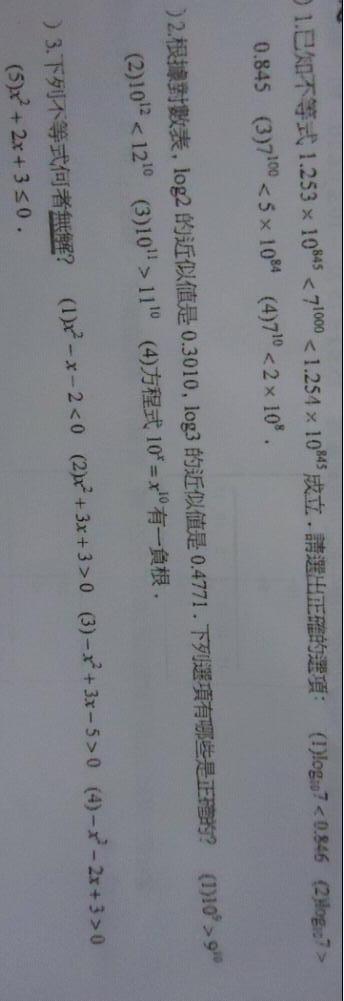 )1.已知不等式 1.253 × 10⁸⁴⁵ < 7¹⁰⁰⁰ < 1.254 × 10⁸⁴⁵ 成立．請選出正確的選項： (1)log₁₀7 < 0.846 (2)log₁₀7 >
0.845 (3)7¹⁰⁰ < 5 × 10⁸⁴ (4)7¹⁰ < 2 × 10⁸．
)2.根據對數表，log2 的近似值是 0.3010，log3 的近似值是 0.4771．下列選項有哪些是正確的？ (1)10⁹ > 9¹⁰
(2)10¹² < 12¹⁰ (3)10¹¹ > 11¹⁰ (4)方程式 10ˣ = x¹⁰ 有一負根．
)3.下列不等式何者無解？ (1)x² − x − 2 < 0 (2)x² + 3x + 3 > 0 (3)−x² + 3x − 5 > 0 (4)−x² − 2x + 3 > 0
(5)x² + 2x + 3 ≤ 0．